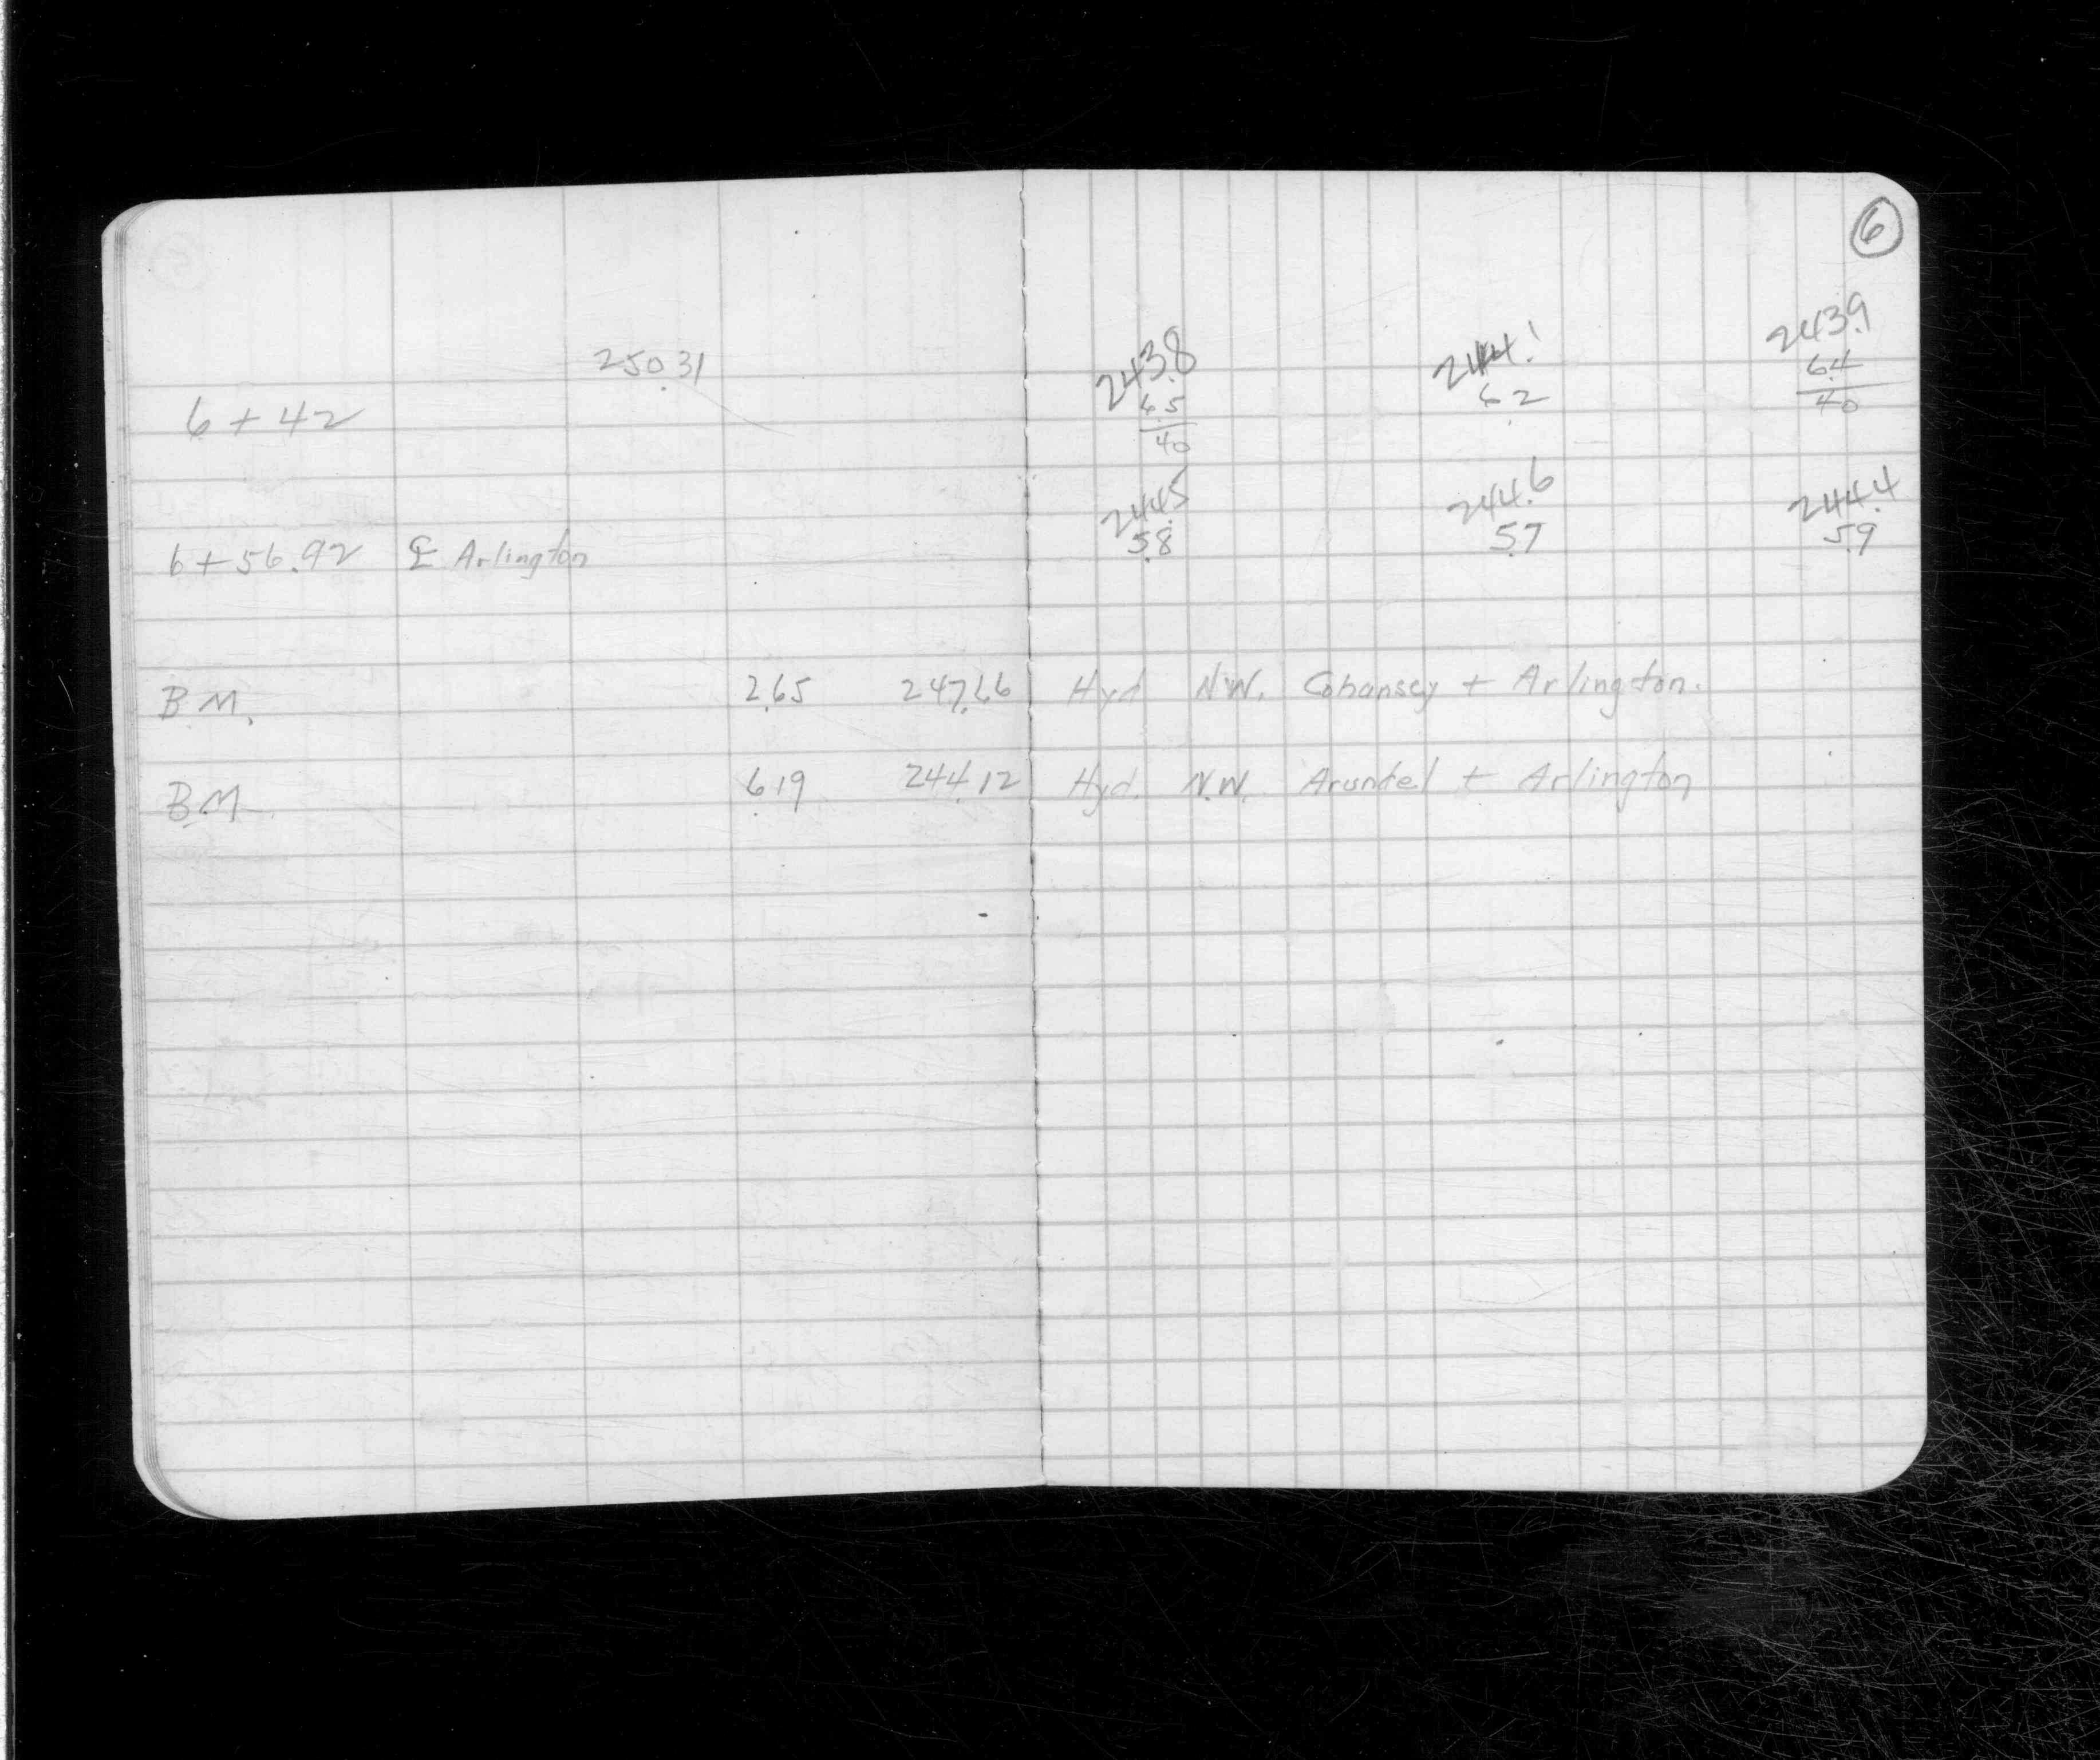 6
250.31 243.8 244.1 243.9
6.5 6.2 6.4
6+42 40 40
244.5 244.6 244.4
6+56.92 ℄ Arlington 5.8 5.7 5.9
B.M. 2.65 247.66 Hyd N.W. Cohansey + Arlington.
B.M. 6.19 244.12 Hyd. N.W. Arundel + Arlington